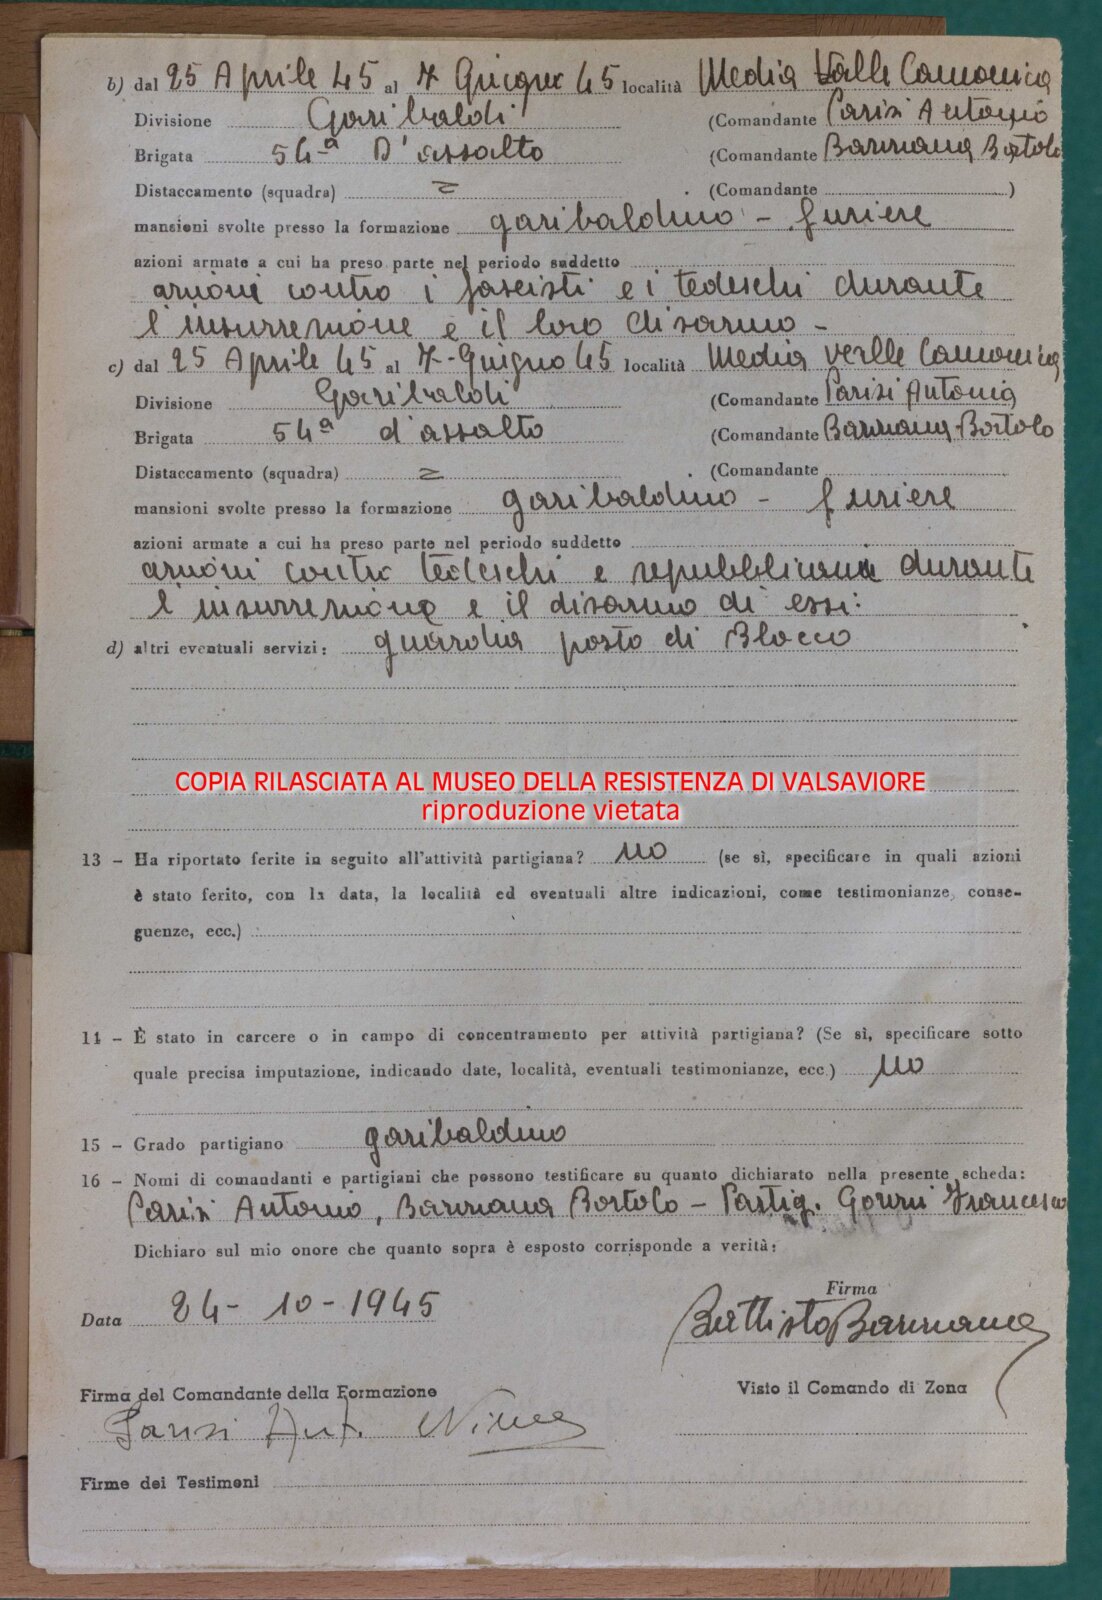 b) dal 25 Aprile 45 al 7 Giugno 45 località Media Valle Camonica
Divisione Garibaldi (Comandante Parisi Antonio
Brigata 54ª D'assalto (Comandante Bazzana Bortolo
Distaccamento (squadra) = . (Comandante )
mansioni svolte presso la formazione garibaldino - furiere
azioni armate a cui ha preso parte nel periodo suddetto
azioni contro i fascisti e i tedeschi durante
l'insurrezione e il loro disarmo -
c) dal 25 Aprile 45 al 7-Giugno 45 località Media valle Camonica
Divisione Garibaldi (Comandante Parisi Antonio
Brigata 54ª d'assalto (Comandante Bazzana Bortolo
Distaccamento (squadra) = . (Comandante
mansioni svolte presso la formazione garibaldino - furiere
azioni armate a cui ha preso parte nel periodo suddetto
azioni contro tedeschi e repubblicani durante
l'insurrezione e il disarmo di essi:
d) altri eventuali servizi: guardia posto di Blocco
COPIA RILASCIATA AL MUSEO DELLA RESISTENZA DI VALSAVIORE
riproduzione vietata
13 - Ha riportato ferite in seguito all'attività partigiana? no (se sì, specificare in quali azioni
è stato ferito, con la data, la località ed eventuali altre indicazioni, come testimonianze, conse-
guenze, ecc.)
14 - È stato in carcere o in campo di concentramento per attività partigiana? (Se sì, specificare sotto
quale precisa imputazione, indicando date, località, eventuali testimonianze, ecc.) no
15 - Grado partigiano garibaldino
16 - Nomi di comandanti e partigiani che possono testificare su quanto dichiarato nella presente scheda:
Parisi Antonio, Bazzana Bortolo - Partig. Gozzi Francesco
Dichiaro sul mio onore che quanto sopra è esposto corrisponde a verità:
Firma
Data 24- 10-1945
Battista Bazzana
Firma del Comandante della Formazione Visto il Comando di Zona
Parisi Ant. Nino
Firme dei Testimoni